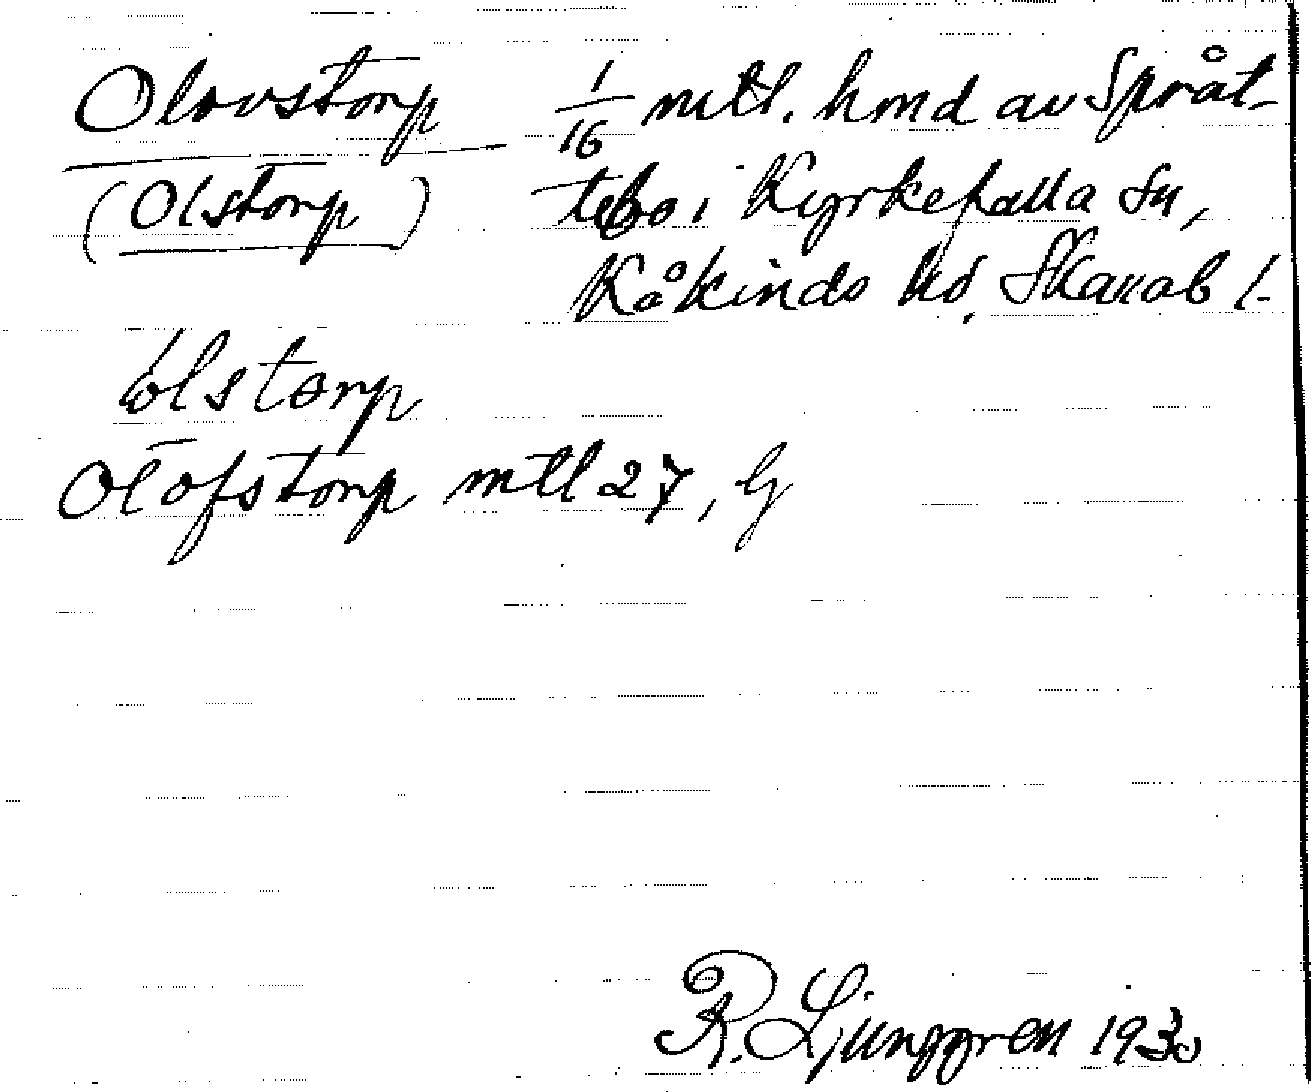 Olovstorp 1/16 mtl. hmd av Språt-
(Olstorp) tebo i Kyrkefalla sn,
Kåkinds hd, Skarab l.
ólstorp
Olofstorp mtl 27, G
R. Ljunggren 1930